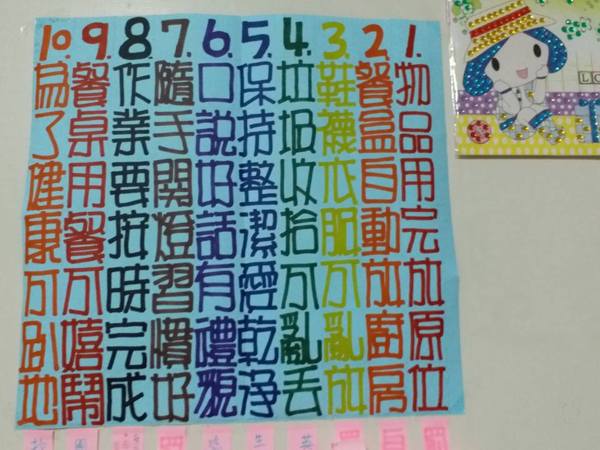 1. 物品用完放原位
2. 餐盒自動放廚房
3. 鞋襪衣服不亂放
4. 垃圾收拾不亂丟
5. 保持整潔愛乾净
6. 口說好話有禮貌
7. 隨手關燈習慣好
8. 作業要按時完成
9. 餐桌用餐不嬉鬧
10. 為了健康不趴地